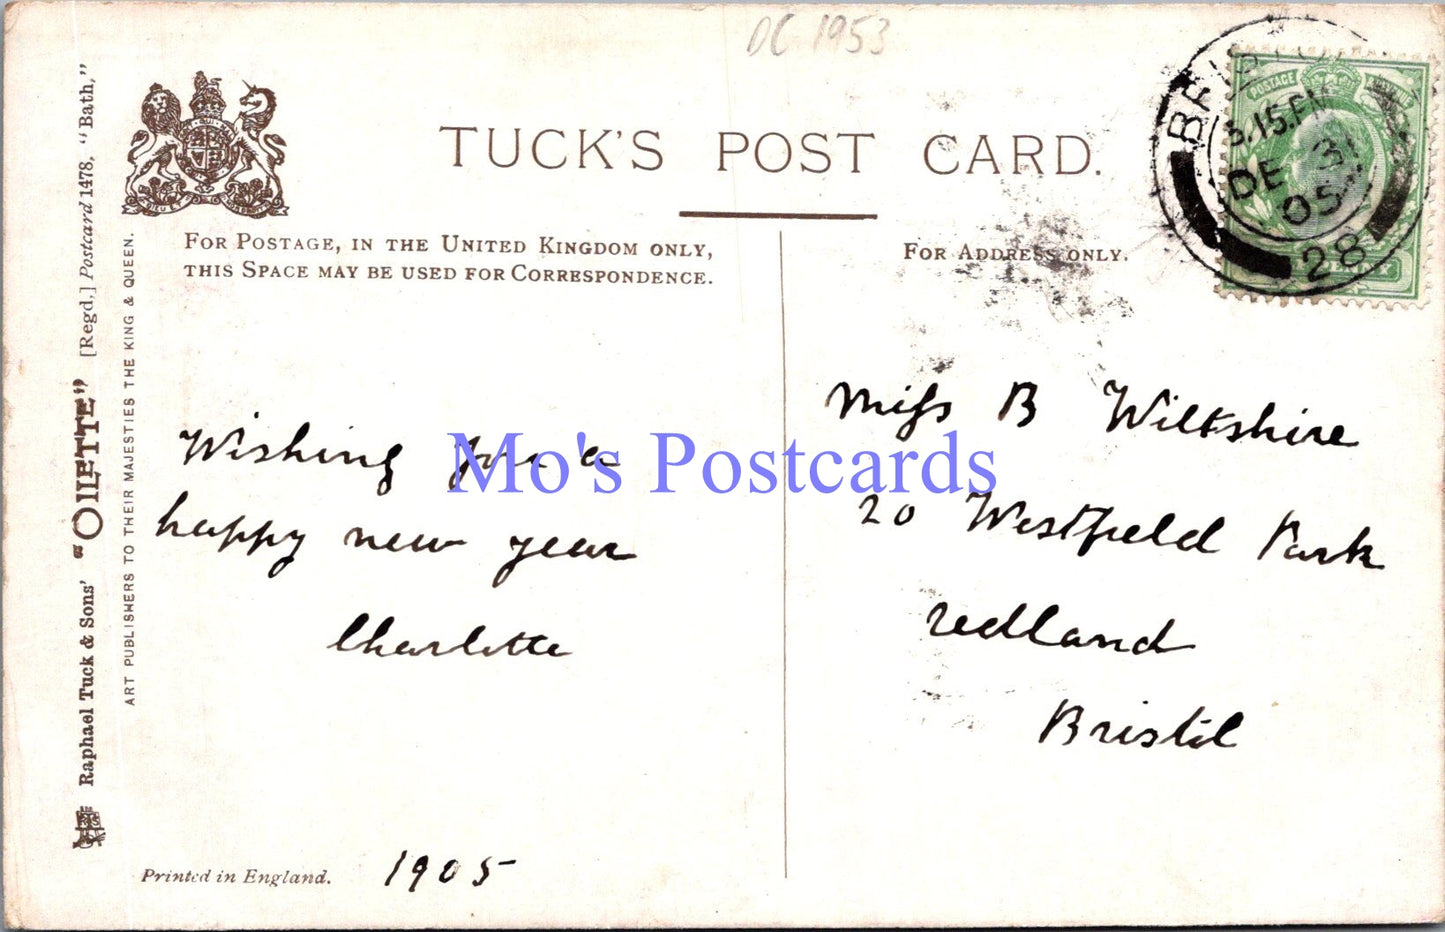 DC 1953
TUCK'S POST CARD.
FOR POSTAGE, IN THE UNITED KINGDOM ONLY,
THIS SPACE MAY BE USED FOR CORRESPONDENCE.
FOR ADDRESS ONLY.
BRISTOL
5.15.PM
DE 31
05
28
POSTAGE
Wishing you a
happy new year
Charlotte
1905
Miss B Wiltshire
20 Westfield Park
redland
Bristol
Mo's Postcards
Raphael Tuck & Sons' "OILETTE" [Regd.] Postcard 1478. "Bath,"
ART PUBLISHERS TO THEIR MAJESTIES THE KING & QUEEN.
Printed in England.